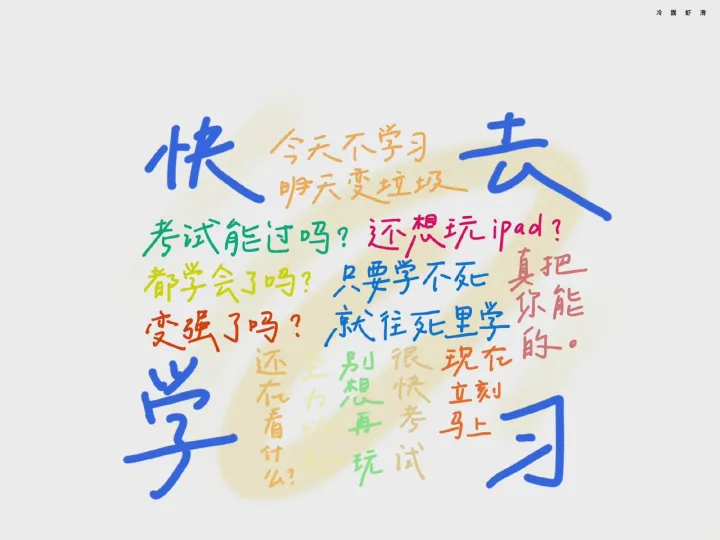 冷面虾滑
快去
今天不学习
明天变垃圾
考试能过吗？
还想玩ipad？
都学会了吗？
只要学不死
真把
你能
的。
变强了吗？
就往死里学
学习
还在看什么？
别想再玩
很快考试
现在
立刻
马上